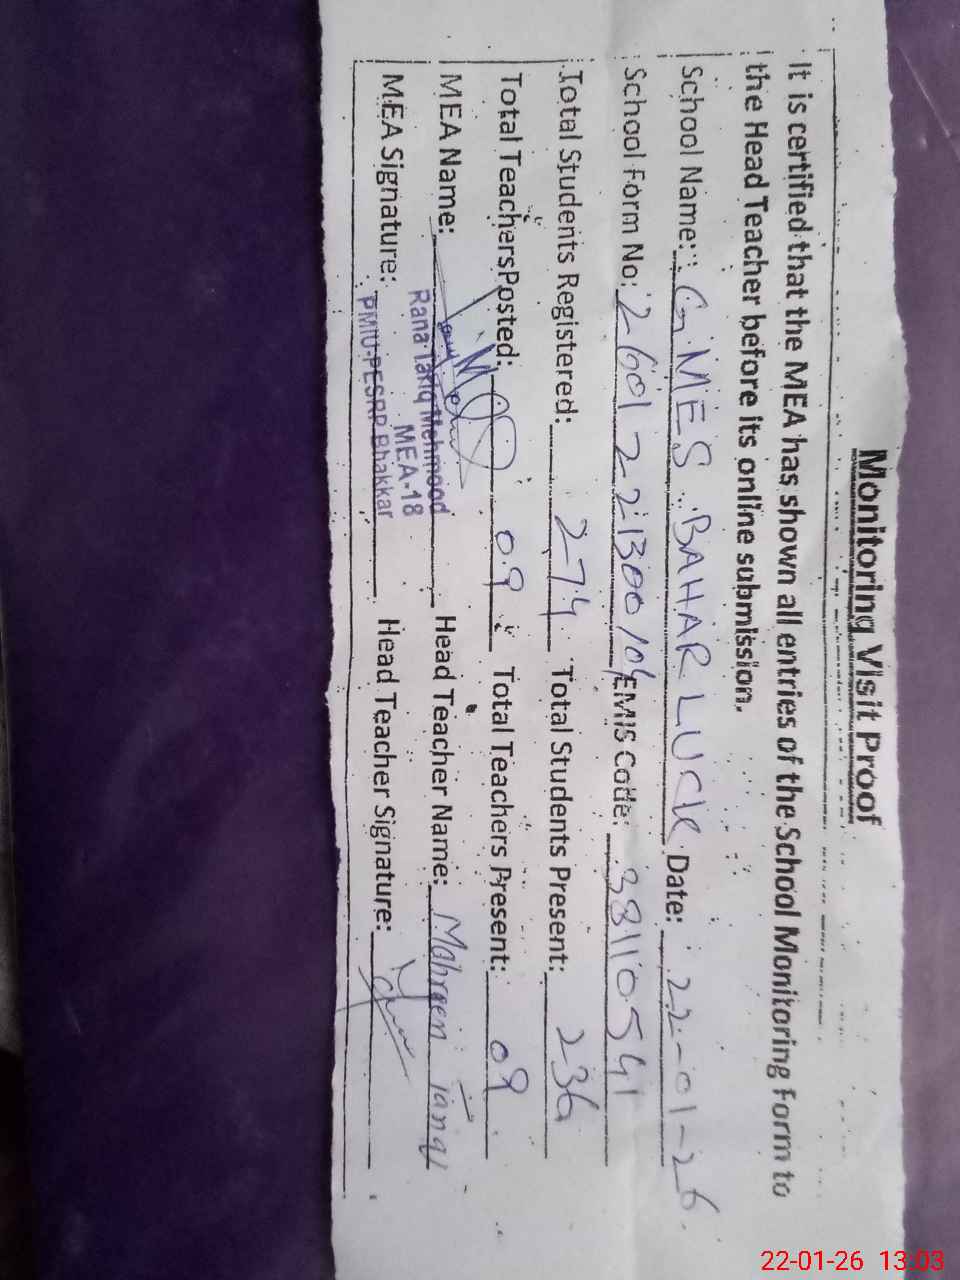 Monitoring Visit Proof
It is certified that the MEA has shown all entries of the School Monitoring Form to
the Head Teacher before its online submission.
School Name: GMES BAHAR LUCK Date: 22-01-26
School Form No: 2601221300104 EMIS Code: 38110541
Total Students Registered: 274 Total Students Present: 236
Total Teachers Posted: 09 Total Teachers Present: 09
MEA Name: Rana Tariq Mehmood Head Teacher Name: Mahreen Tariq
MEA-18
MEA Signature: PMIU-PESRP Bhakkar Head Teacher Signature:
22-01-26 13:03